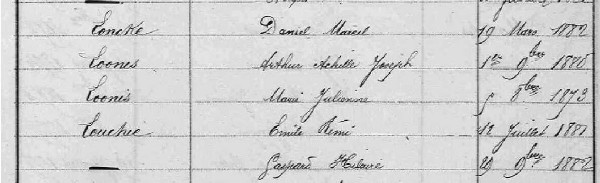 Loncke Daniel Marcel 19 Mars 1882
Loones Arthur Achille Joseph 1er 9bre 1880
Loonis Marie Julienne 5 8bre 1873
Louchie Emile Rémi 12 Juillet 1881
— Gaspard Hilaire 29 9bre 1882